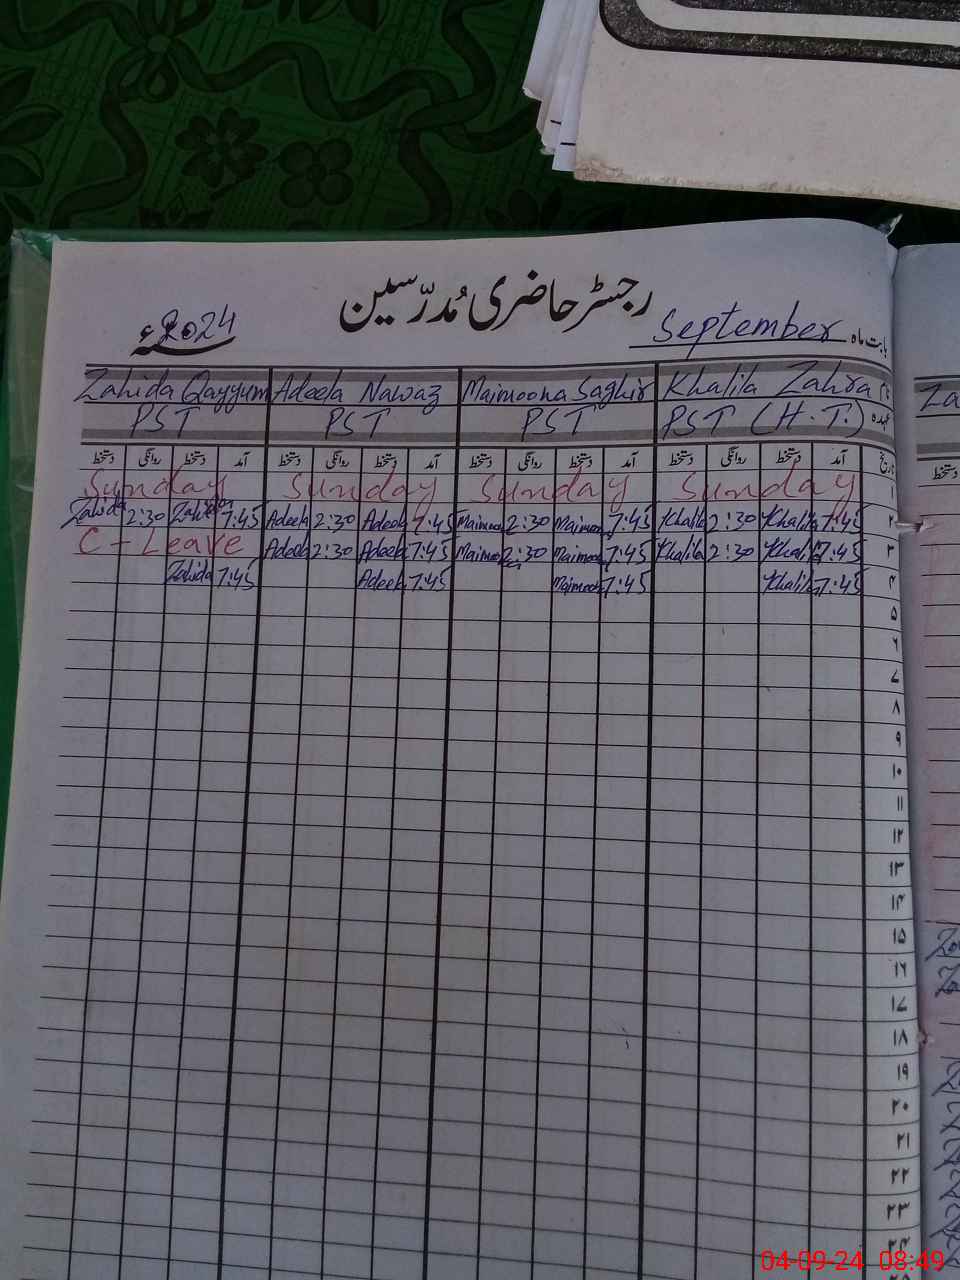 رجسٹر حاضری مُدرّسین
بابت ماہ September سنہ 2024ء
نام Khalila Zahra Maimoona Saghir Adeela Nawaz Zahida Qayyum
عہدہ PST (H.T.) PST PST PST
تاریخ آمد دستخط روانگی دستخط آمد دستخط روانگی دستخط آمد دستخط روانگی دستخط آمد دستخط روانگی دستخط
۱ Sunday Sunday Sunday Sunday
۲ 7:45 Khalila 2:30 Khalila 7:45 Maimoona 2:30 Maimoona 7:45 Adeela 2:30 Adeela 7:45 Zahida 2:30 Zahida
۳ 7:45 Khalila 2:30 Khalila 7:45 Maimoona 2:30 Maimoona 7:45 Adeela 2:30 Adeela C-Leave
۴ 7:45 Khalila 7:45 Maimoona 7:45 Adeela 7:45 Zahida
۵
۶
۷
۸
۹
۱۰
۱۱
۱۲
۱۳
۱۴
۱۵
۱۶
۱۷
۱۸
۱۹
۲۰
۲۱
۲۲
۲۳
۲۴
Za
دستخط
04-09-24 08:49